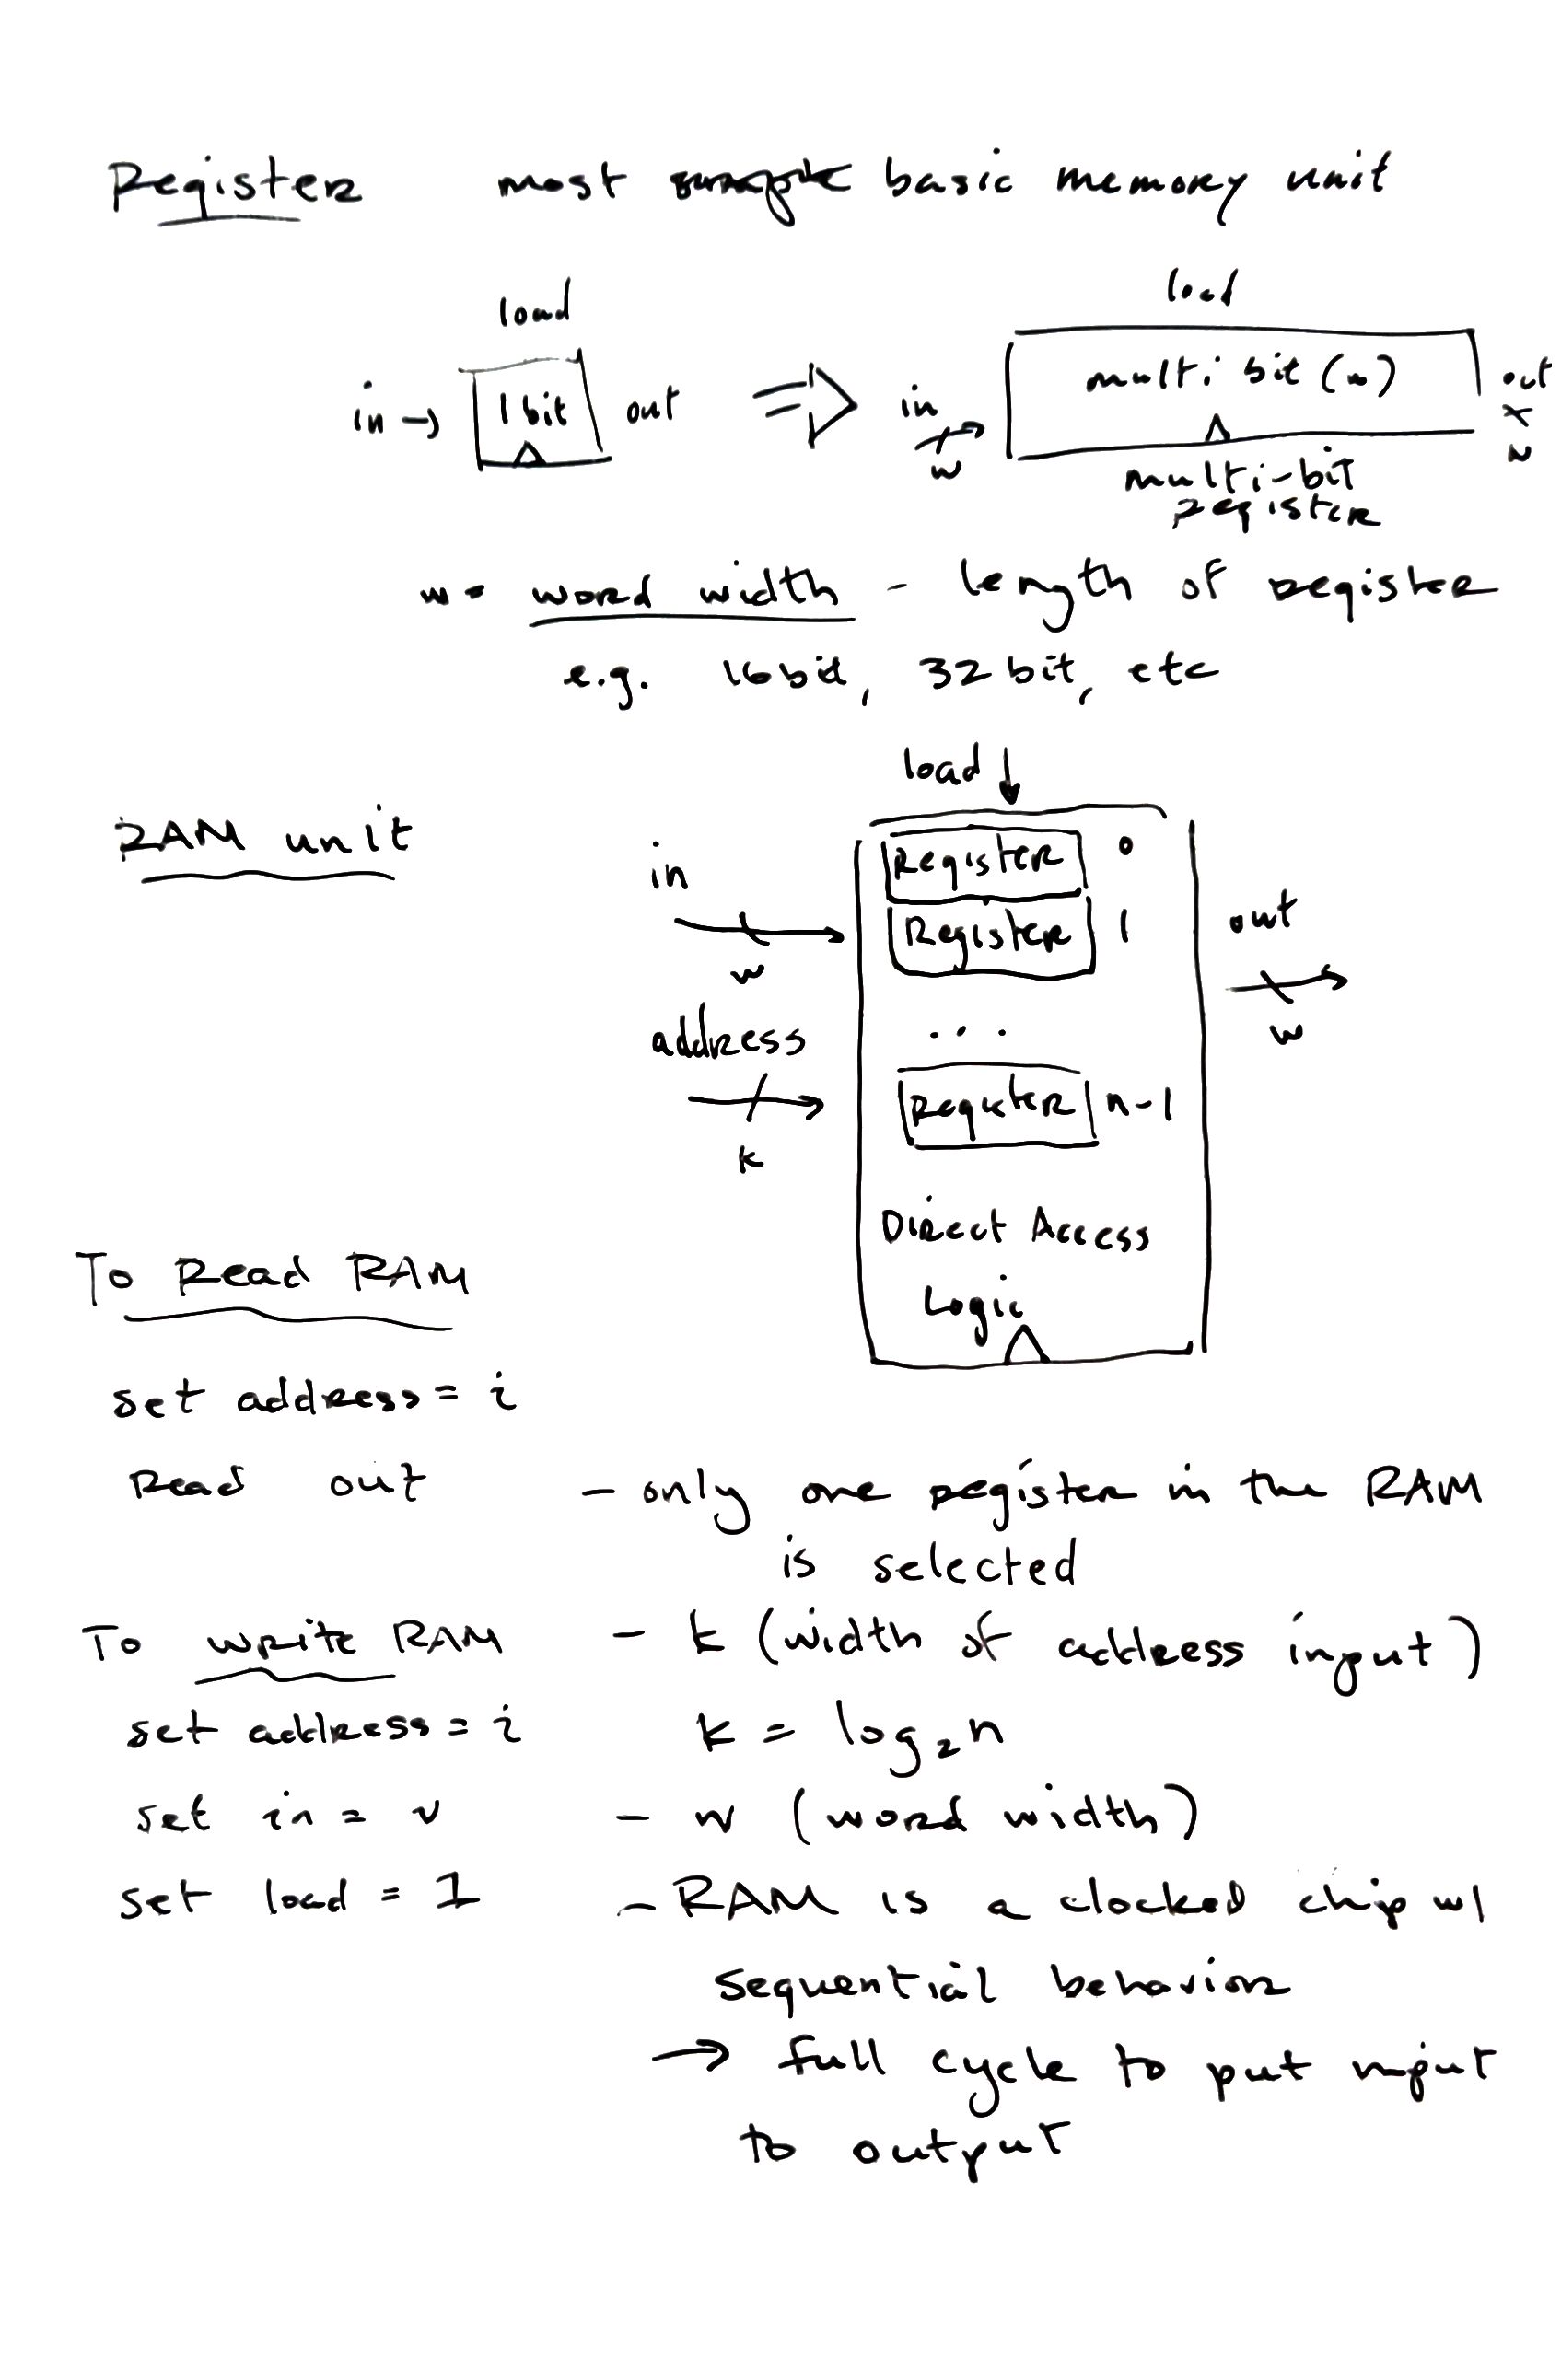 Register most basic memory unit
load
in → 1 bit out ⇒
load
in w multi bit (w) out w
multi-bit
register
w = word width - length of register
e.g. 16 bit, 32 bit, etc
RAM unit
load ↓
in
w
address
k
Register 0
Register 1
...
Register n-1
Direct Access
Logic
out
w
To Read RAM
set address = i
Read out
- only one register in the RAM
is selected
To write RAM
set address = i
set in = v
set load = 1
- k (width of address input)
k = log₂n
- w (word width)
- RAM is a clocked chip w/
sequential behavior
→ full cycle to put input
to output